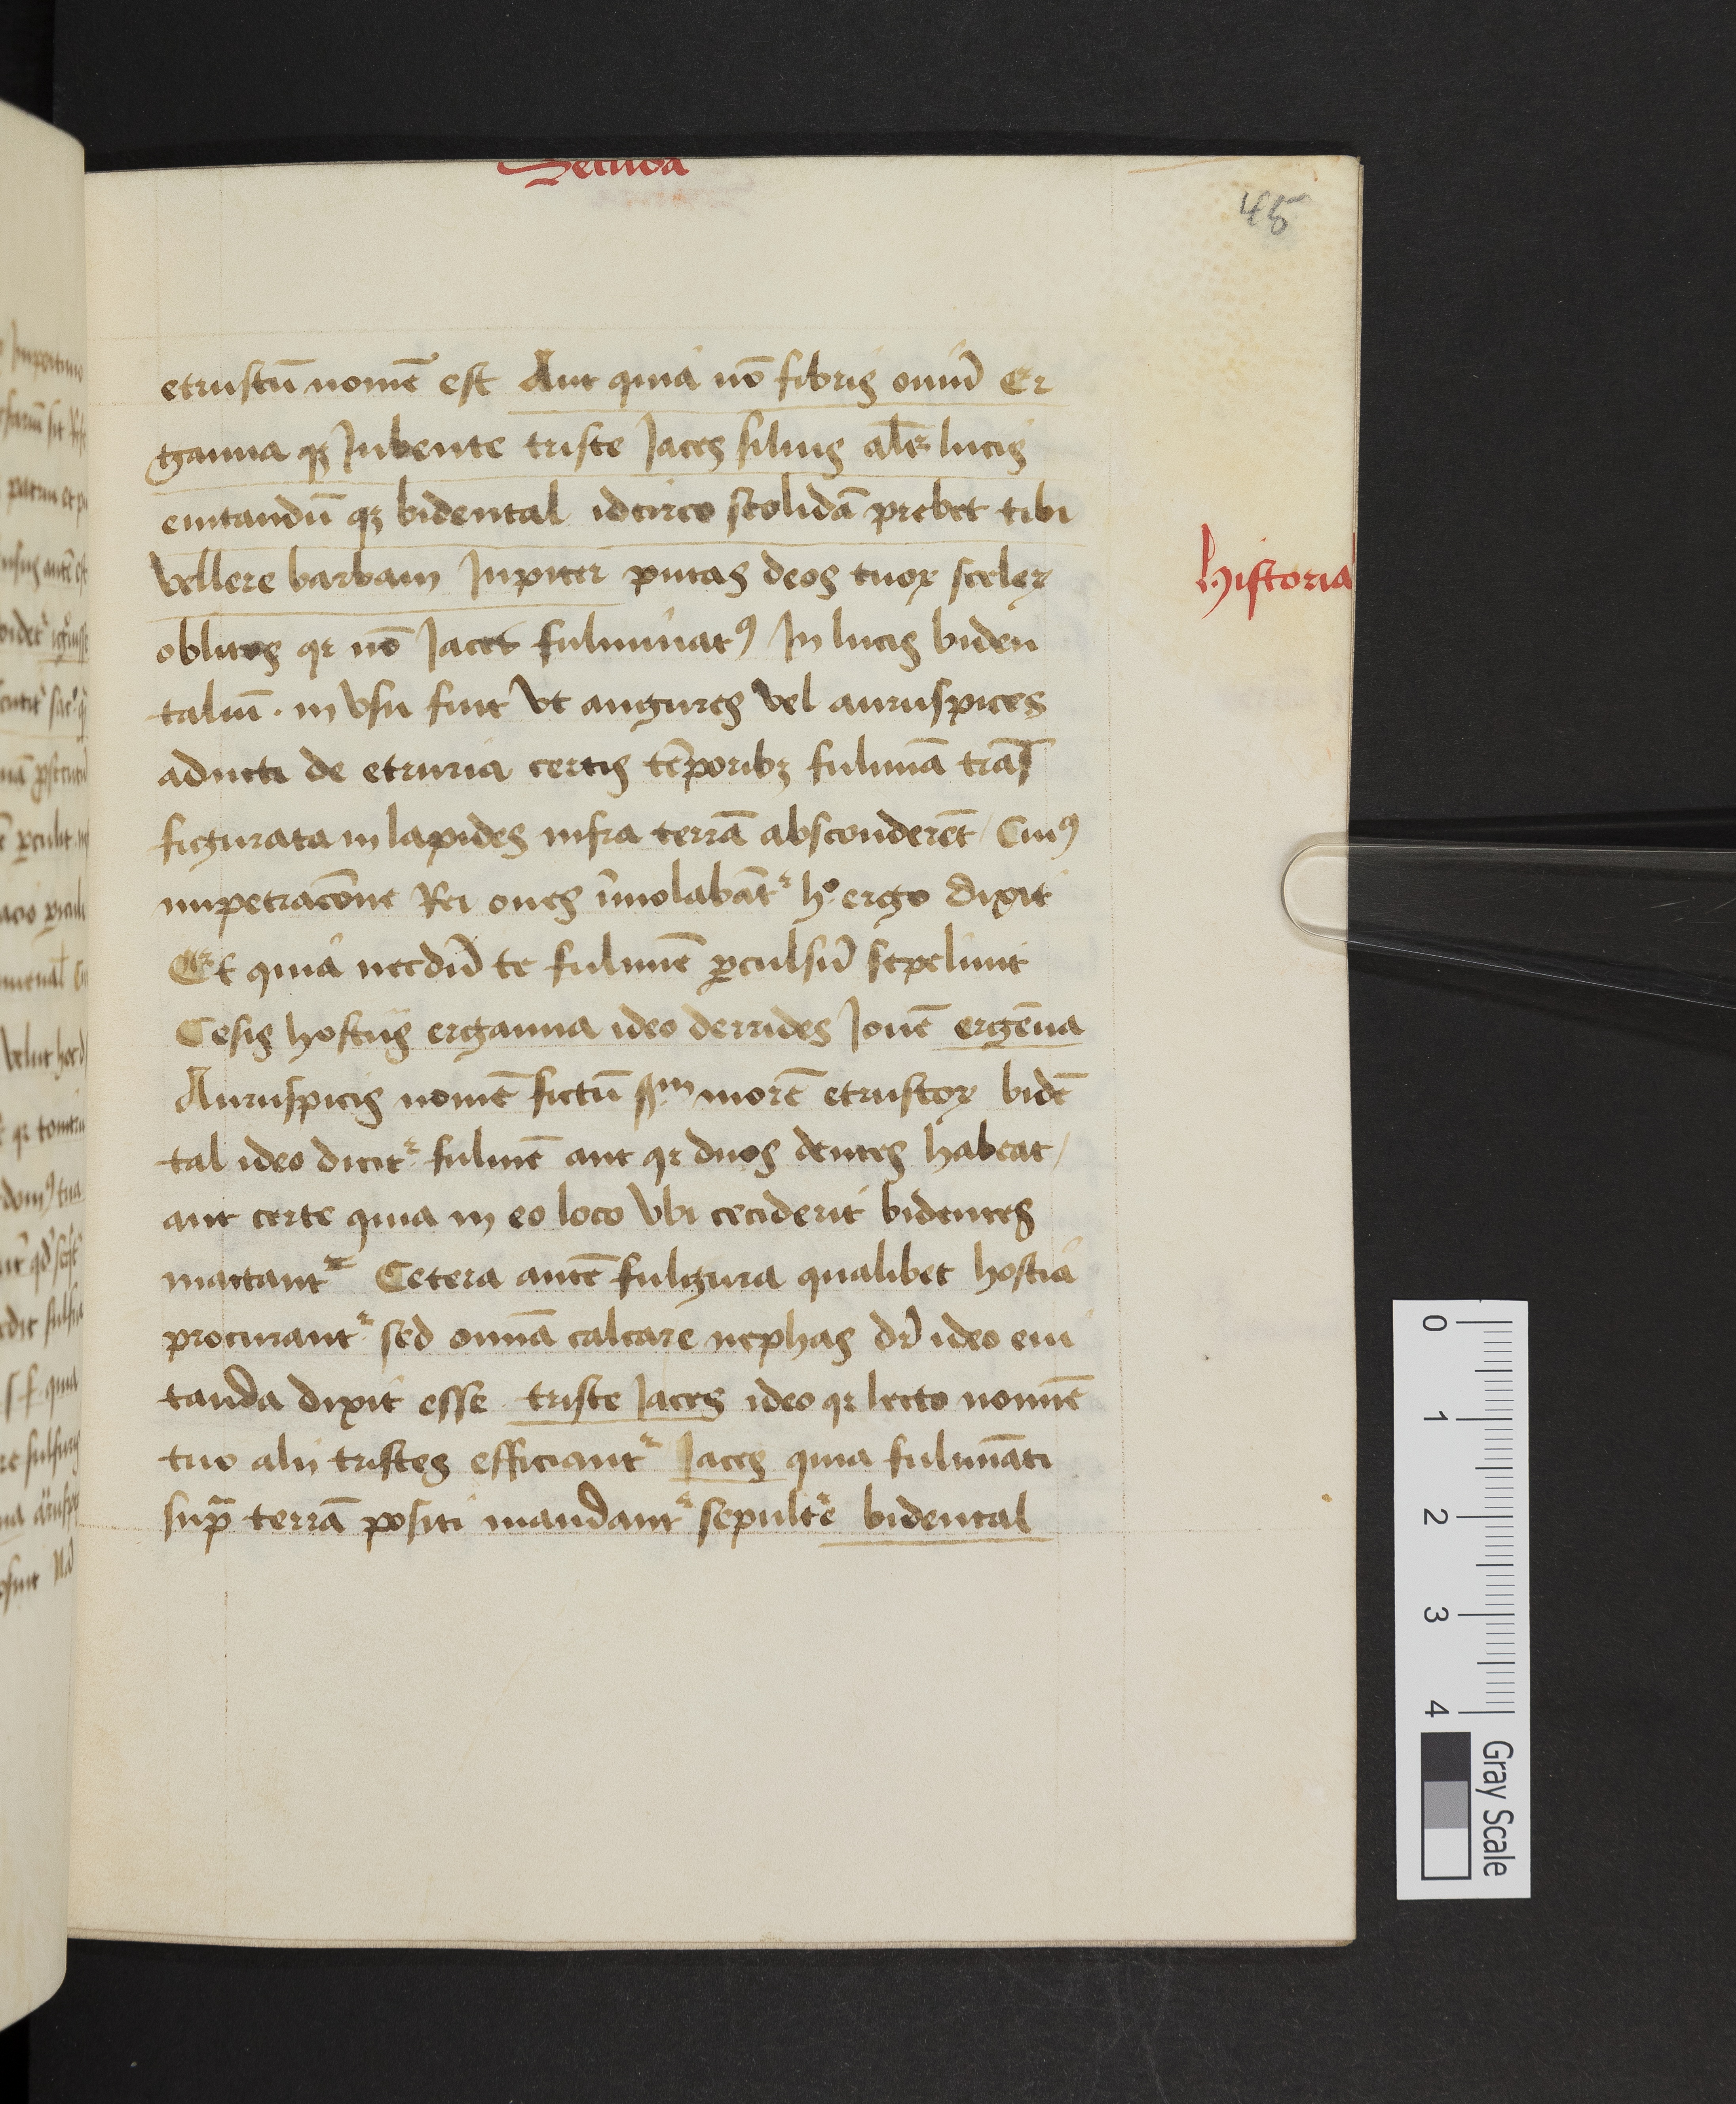 Secunda
45
etruscū nomē est Aut quia nō fibris oviū Er
ganna qȝ Jubente triste Jaces silvis alr̄ lucis
evitandū qȝ bidental idcirco stolidā prebet tibi
vellere barbam Jupiter putas deos tuoꝝ sceleꝝ
oblitos qr nō Jacet fulminatꝰ In lucis biden
taliū · in vsu fuit vt augures vel auruspices
aducti de etruria certis tēporibȝ fulmīa trās
figurata in lapides infra terrā absconderēt / Cuiꝰ
impetracōne Rei oves īmolabātᷣ hº ergo dixit
Et quia necdū te fulmīe ꝑculsū sepeliuit
Cesis hostiis erganna ideo derrides Jovē ergēna
Auruspicis nomē fictū ſꝫm morē etruscoꝝ bidē
tal ideo dicitᷣ fulmē aut qr duos dentes habeat /
aut certe quia in eo loco vbi ceciderit bidentes
mactantᷣ Cetera autē fulgura qualibet hostia
procurantᷣ sed omīa calcare nephas dr̄ ideo evi
tanda dixit esse triste Jaces ideo qr lecto nomīe
tuo alii tristes efficiantᷣ Jaces quia fulmīati
supᷓ terrā positi mandantᷣ sepultᷣe bidental
Historia
0
1
2
3
4
Gray Scale